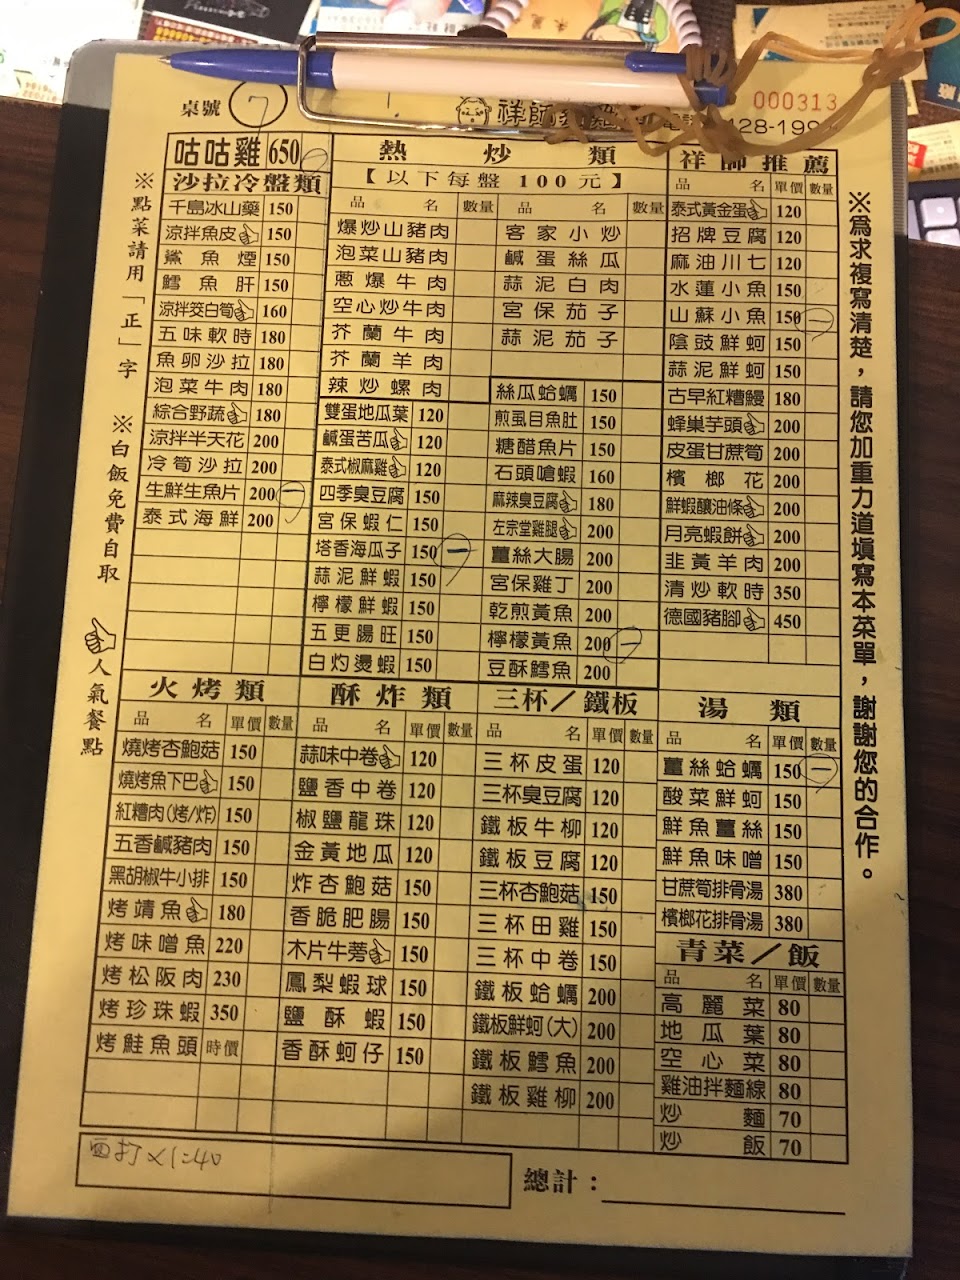 桌號 7
000313
128-199
咕咕雞 650
沙拉冷盤類
千島冰山藥 150
涼拌魚皮 150
鯊魚煙 150
鱈魚肝 150
涼拌筊白筍 160
五味軟時 180
魚卵沙拉 180
泡菜牛肉 180
綜合野蔬 180
涼拌半天花 200
冷筍沙拉 200
生鮮生魚片 200 一
泰式海鮮 200
熱炒類
【以下每盤100元】
品名 數量 品名 數量
爆炒山豬肉 客家小炒
泡菜山豬肉 鹹蛋絲瓜
蔥爆牛肉 蒜泥白肉
空心炒牛肉 宮保茄子
芥蘭牛肉 蒜泥茄子
芥蘭羊肉
辣炒螺肉
雙蛋地瓜葉 120
鹹蛋苦瓜 120
泰式椒麻雞 120
四季臭豆腐 150
宮保蝦仁 150
塔香海瓜子 150 一
蒜泥鮮蝦 150
檸檬鮮蝦 150
五更腸旺 150
白灼燙蝦 150
絲瓜蛤蠣 150
煎虱目魚肚 150
糖醋魚片 150
石頭嗆蝦 160
麻辣臭豆腐 180
左宗堂雞腿 200
薑絲大腸 200
宮保雞丁 200
乾煎黃魚 200
檸檬黃魚 200 一
豆酥鱈魚 200
祥師推薦
品名 單價 數量
泰式黃金蛋 120
招牌豆腐 120
麻油川七 120
水蓮小魚 150
山蘇小魚 150 一
陰豉鮮蚵 150
蒜泥鮮蚵 150
古早紅糟鰻 180
蜂巢芋頭 200
皮蛋甘蔗筍 200
檳榔花 200
鮮蝦釀油條 200
月亮蝦餅 200
韭黃羊肉 200
清炒軟時 350
德國豬腳 450
火烤類
品名 單價 數量
燒烤杏鮑菇 150
燒烤魚下巴 150
紅糟肉(烤/炸) 150
五香鹹豬肉 150
黑胡椒牛小排 150
烤靖魚 180
烤味噌魚 220
烤松阪肉 230
烤珍珠蝦 350
烤鮭魚頭 時價
酥炸類
品名 單價 數量
蒜味中卷 120
鹽香中卷 120
椒鹽龍珠 120
金黃地瓜 120
炸杏鮑菇 150
香脆肥腸 150
木片牛蒡 150
鳳梨蝦球 150
鹽酥蝦 150
香酥蚵仔 150
三杯／鐵板
品名 單價 數量
三杯皮蛋 120
三杯臭豆腐 120
鐵板牛柳 120
鐵板豆腐 120
三杯杏鮑菇 150
三杯田雞 150
三杯中卷 150
鐵板蛤蠣 200
鐵板鮮蚵(大) 200
鐵板鱈魚 200
鐵板雞柳 200
湯類
品名 單價 數量
薑絲蛤蠣 150 一
酸菜鮮蚵 150
鮮魚薑絲 150
鮮魚味噌 150
甘蔗筍排骨湯 380
檳榔花排骨湯 380
青菜／飯
品名 單價 數量
高麗菜 80
地瓜葉 80
空心菜 80
雞油拌麵線 80
炒麵 70
炒飯 70
※點菜請用「正」字 ※白飯免費自取 人氣餐點
※為求複寫清楚，請您加重力道填寫本菜單，謝謝您的合作。
總計：